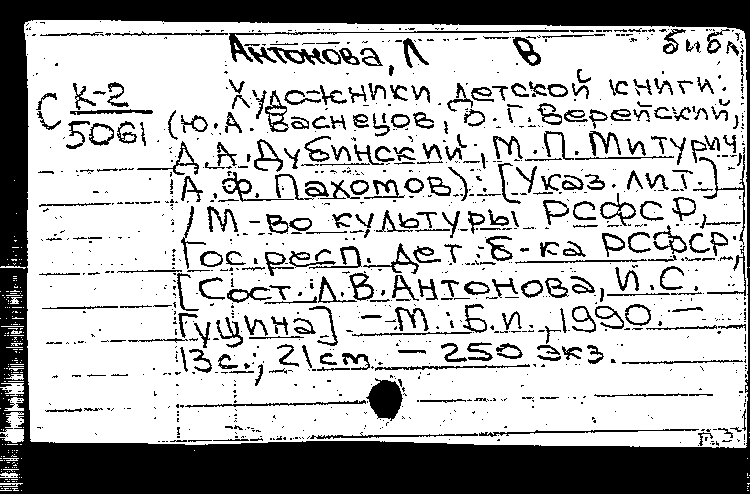 Антонова, Л В библ
С К-2
5061
Художники детской книги:
(Ю.А. Васнецов, О.Г. Верейский,
Д.А. Дубинский, М.П. Митурич,
А.Ф. Пахомов): [Указ. лит.]
/ М-во культуры РСФСР,
Гос. респ. дет. б-ка РСФСР;
[Сост.: Л.В. Антонова, И.С.
Гущина]. – М.: Б.и., 1990. –
13 с.; 21 cm. – 250 экз.